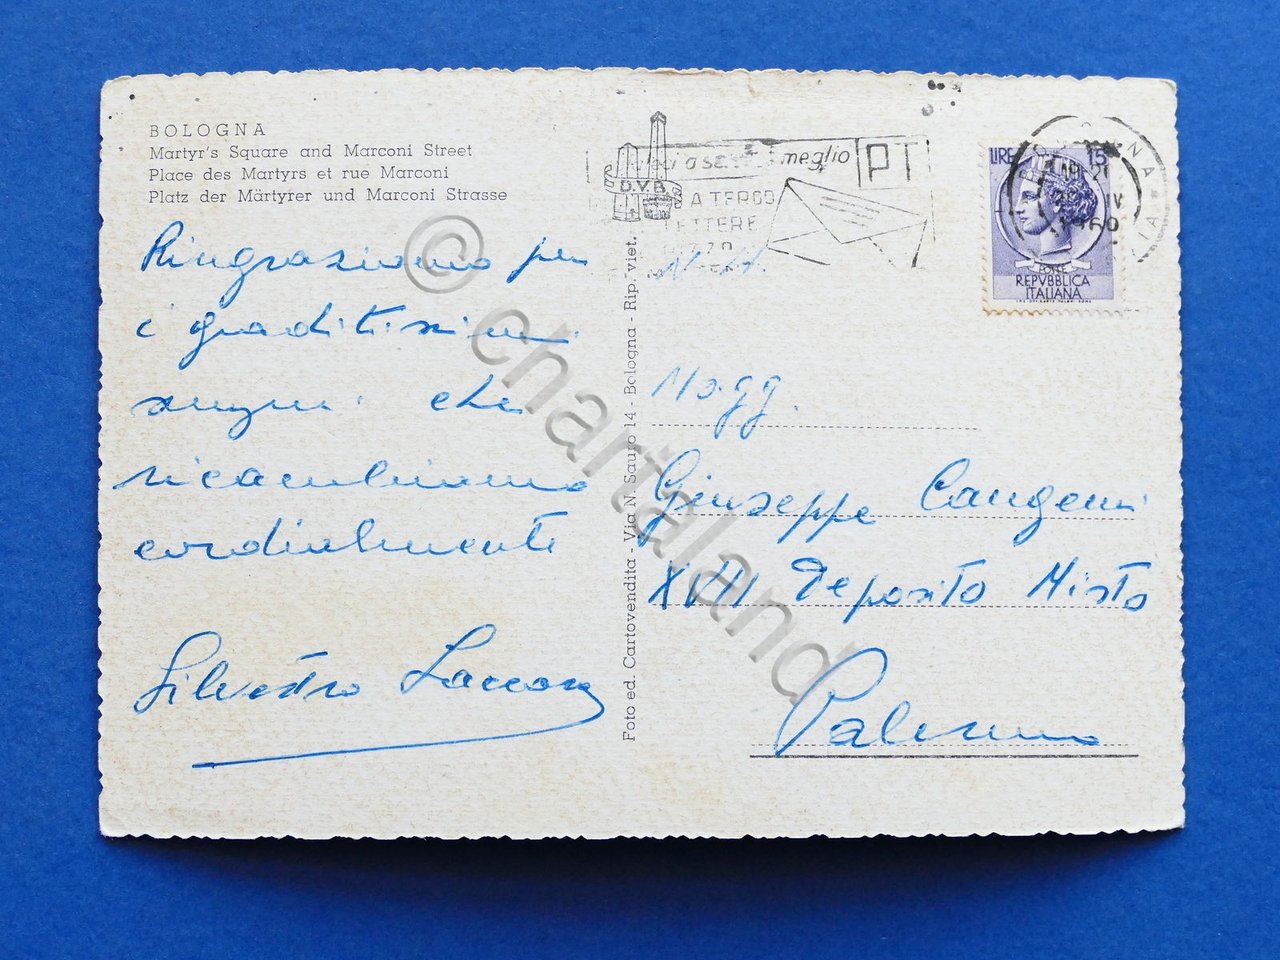 BOLOGNA
Martyr's Square and Marconi Street
Place des Martyrs et rue Marconi
Platz der Märtyrer und Marconi Strasse
Ringraziamo per
i graditissimi
auguri che
ricambiamo
cordialmente
Silvestro
Foto ed. Cartovendita - Via N. Sauro 14 - Bologna - Rip. viet.
D.V.B.
meglio PT
A TERGO
LETTERE
LIRE 15
REPVBBLICA
ITALIANA
Magg.
Giuseppe Cangemi
XVIII Deposito Misto
Palermo
© chartaland